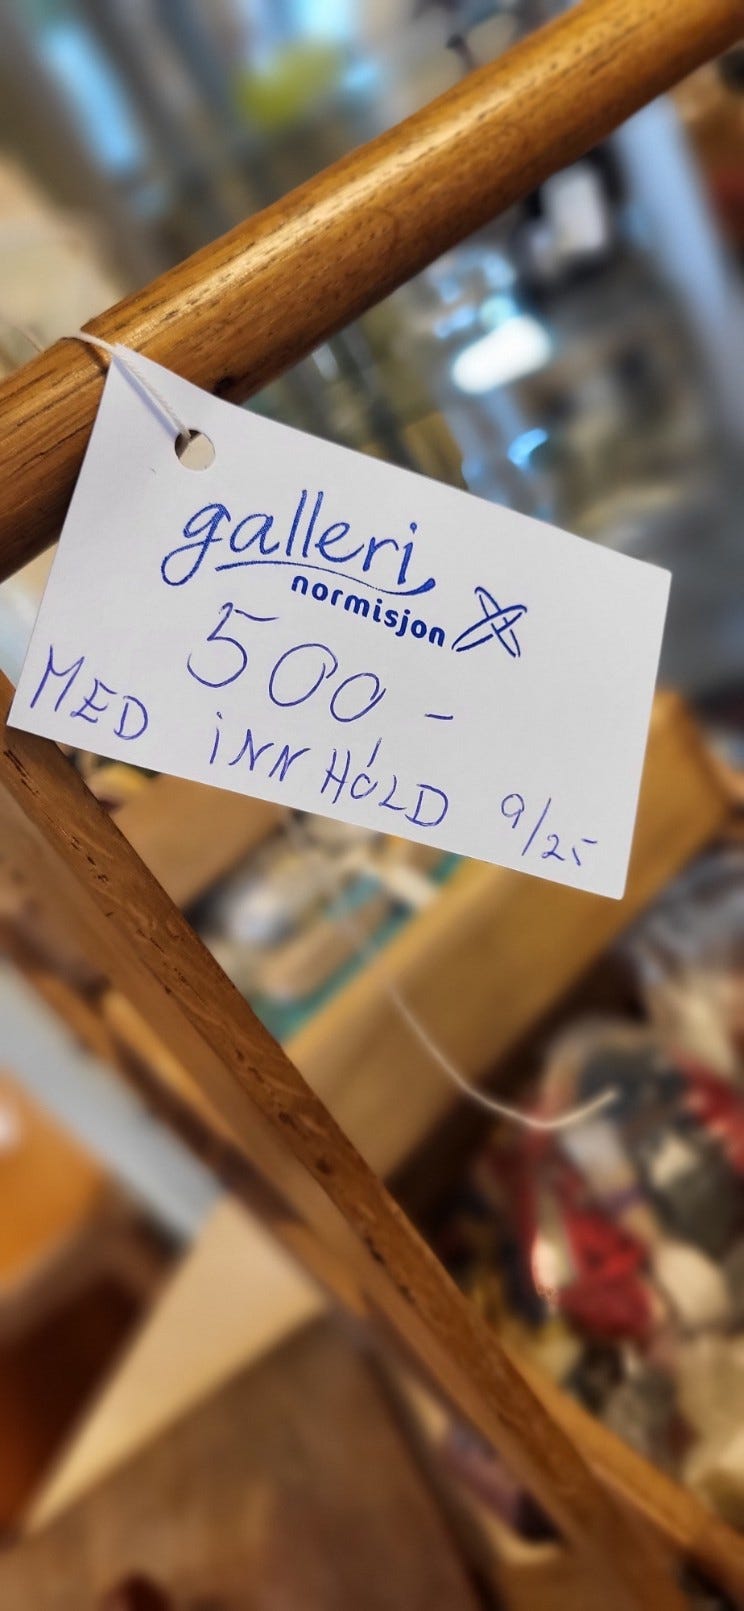 galleri
normisjon
500-
MED INNHOLD 9/25